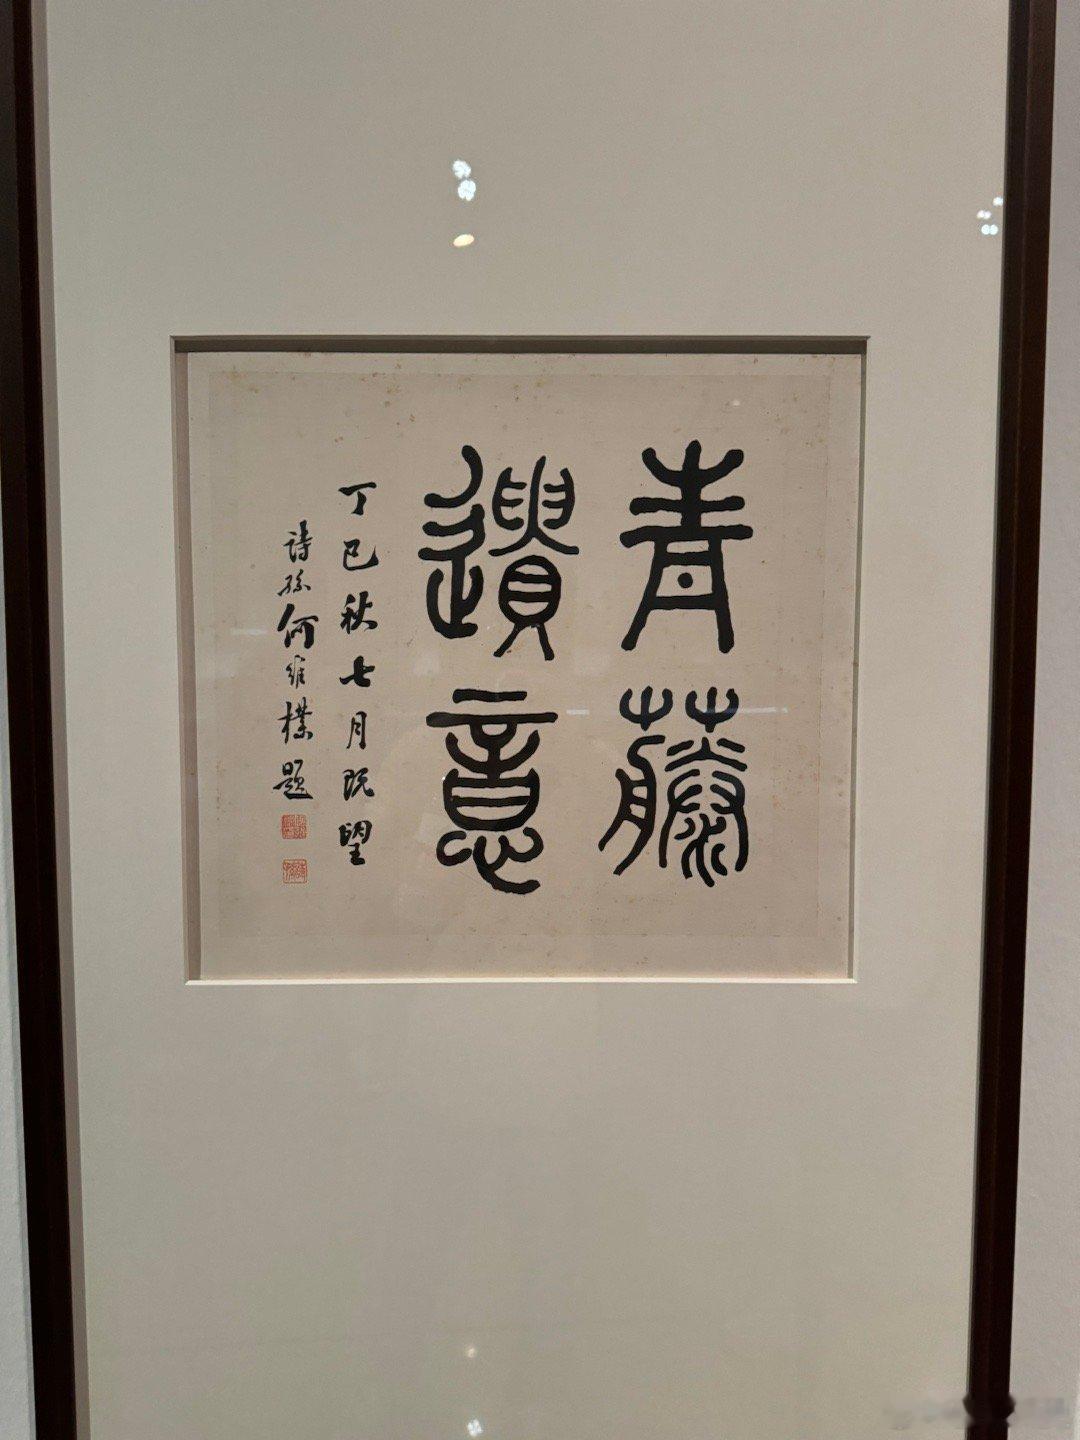 青藤
遺意
丁巳秋七月既望
詩孫何維樸題